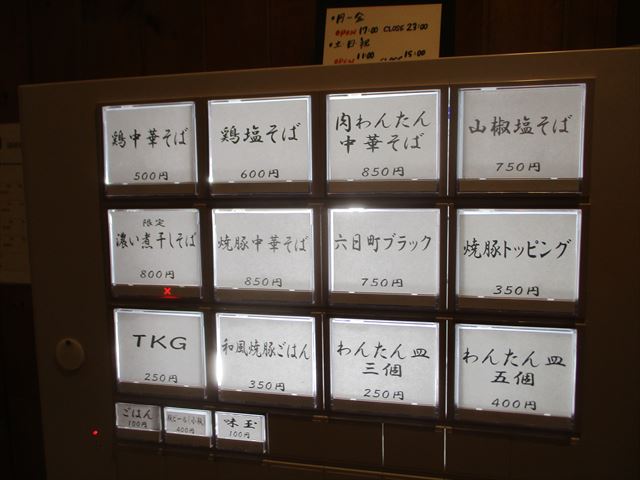 月〜金
OPEN 17:00 CLOSE 23:00
土日祝
OPEN 11:00 CLOSE 15:00
鶏中華そば
500円
鶏塩そば
600円
肉わんたん
中華そば
850円
山椒塩そば
750円
限定
濃い煮干しそば
800円
×
焼豚中華そば
850円
六日町ブラック
750円
焼豚トッピング
350円
TKG
250円
和風焼豚ごはん
350円
わんたん皿
三個
250円
わんたん皿
五個
400円
ごはん
100円
400円
味玉
100円